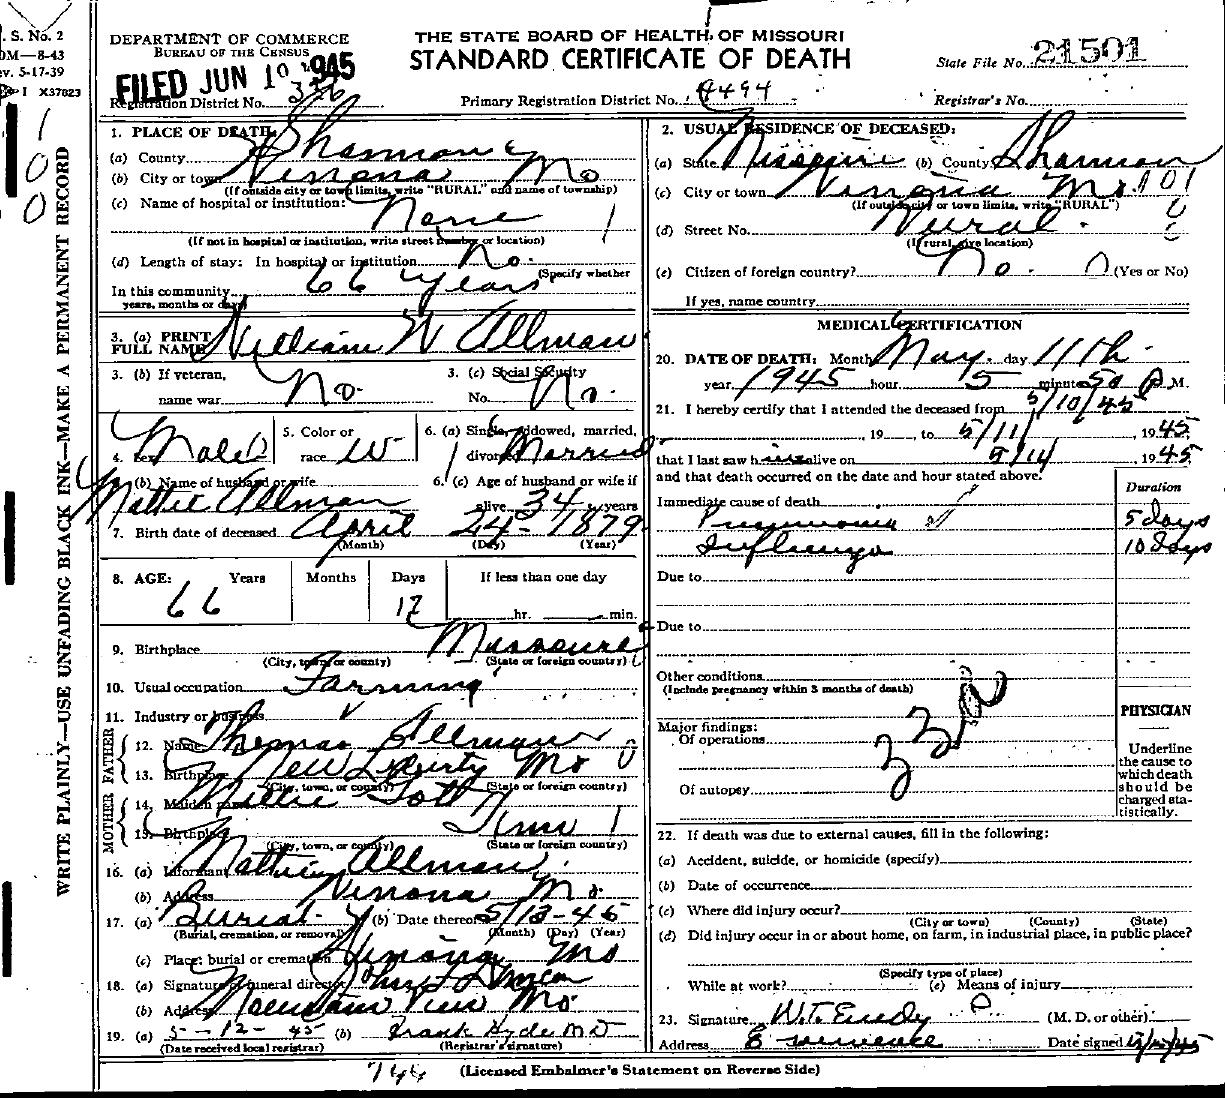 S. No. 2
OM—8-43
v. 5-17-39
I X37823
1
0
0
WRITE PLAINLY—USE UNFADING BLACK INK—MAKE A PERMANENT RECORD
DEPARTMENT OF COMMERCE
BUREAU OF THE CENSUS
FILED JUN 10 1945
THE STATE BOARD OF HEALTH OF MISSOURI
STANDARD CERTIFICATE OF DEATH
State File No. 21501
Registration District No. 336
Primary Registration District No. 4494
Registrar's No.
1. PLACE OF DEATH:
(a) County Shannon
(b) City or town Winona Mo
(If outside city or town limits, write "RURAL" and name of township)
(c) Name of hospital or institution:
None
(If not in hospital or institution, write street number or location)
(d) Length of stay: In hospital or institution No.
(Specify whether
In this community 66 years
years, months or days)
3. (a) PRINT FULL NAME William W Allman
3. (b) If veteran, name war No.
3. (c) Social Security No. No.
4. Sex Male
5. Color or race W
6. (a) Single, widowed, married, divorced Married
6. (b) Name of husband or wife Mattie Allman
6. (c) Age of husband or wife if alive 34 years
7. Birth date of deceased April 24 - 1879
(Month) (Day) (Year)
8. AGE: Years Months Days If less than one day
66 17 hr. min.
9. Birthplace Missouri
(City, town, or county) (State or foreign country)
10. Usual occupation Farming
11. Industry or business
FATHER
12. Name Thomas Allman
13. Birthplace New Liberty Mo
(City, town, or county) (State or foreign country)
MOTHER
14. Maiden name
15. Birthplace Tenn
(City, town, or county) (State or foreign country)
16. (a) Informant Mattie Allman
(b) Address Winona Mo.
17. (a) Burial (b) Date thereof 5/13-45
(Burial, cremation, or removal) (Month) (Day) (Year)
(c) Place: burial or cremation Winona Mo
18. (a) Signature of funeral director John Duncan
(b) Address Mountain View Mo
19. (a) 5-12-45 (b) Frank Hyde MD
(Date received local registrar) (Registrar's signature)
2. USUAL RESIDENCE OF DECEASED:
(a) State Missouri (b) County Shannon
(c) City or town Winona Mo. 101
(If outside city or town limits, write "RURAL")
(d) Street No. Rural
(If rural, give location)
(e) Citizen of foreign country? No. (Yes or No)
If yes, name country
MEDICAL CERTIFICATION
20. DATE OF DEATH: Month May day 11th
year 1945 hour 5 minute 50 P.M.
21. I hereby certify that I attended the deceased from 5/10/45
, 19 , to 5/11 , 1945,
that I last saw him alive on 5/14 , 1945
and that death occurred on the date and hour stated above.
Duration
Immediate cause of death
Pneumonia 5 days
Influenza 10 days
Due to
Due to
Other conditions
(Include pregnancy within 3 months of death)
33a
Major findings:
Of operations
Of autopsy
PHYSICIAN
Underline
the cause to
which death
should be
charged sta-
tistically.
22. If death was due to external causes, fill in the following:
(a) Accident, suicide, or homicide (specify)
(b) Date of occurrence
(c) Where did injury occur?
(City or town) (County) (State)
(d) Did injury occur in or about home, on farm, in industrial place, in public place?
(Specify type of place)
While at work? (e) Means of injury
23. Signature W.T. Eudy (M. D. or other)
Address Eminence Date signed
766
(Licensed Embalmer's Statement on Reverse Side)